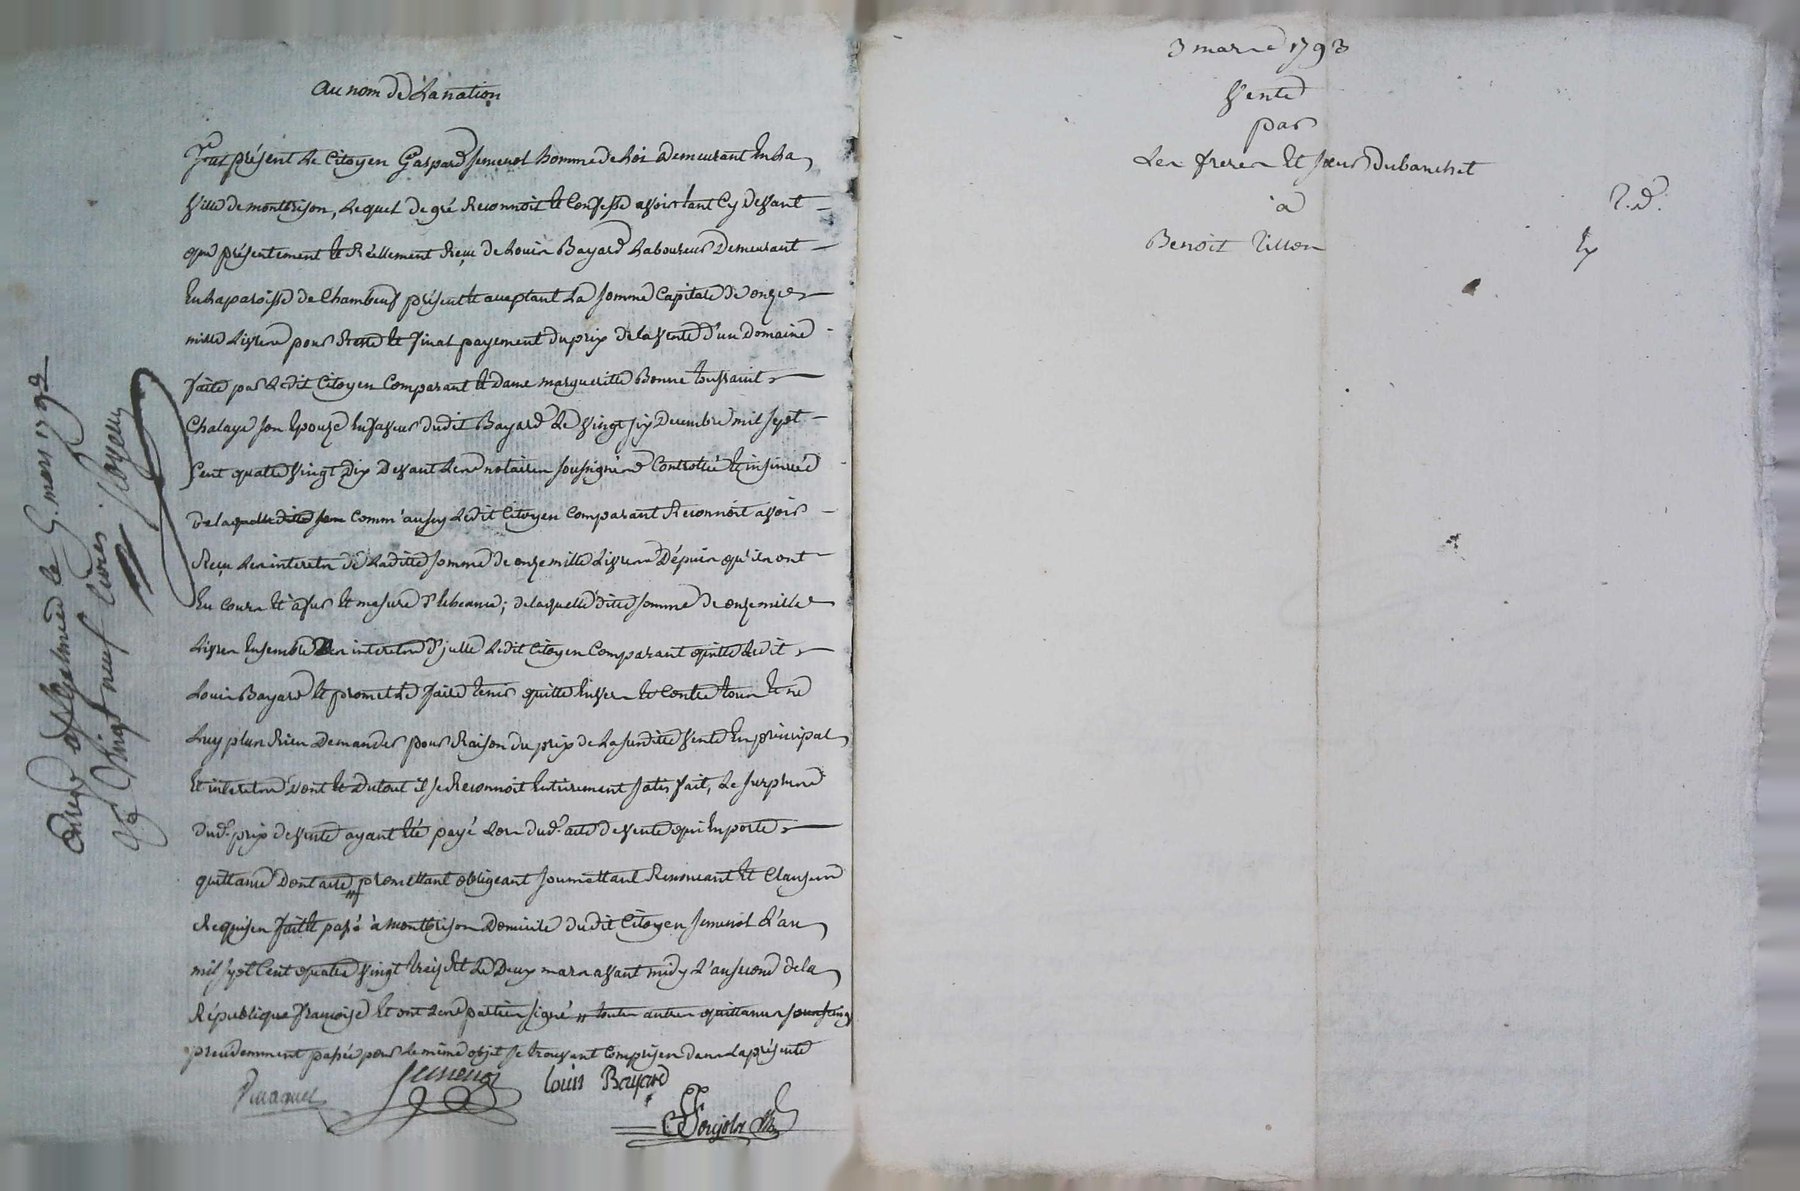 au nom de La nation
fut présent Le Citoyen Gaspard Jemenot homme de Loi Demeurant En La
Ville de montbrison, Lequel de gré Reconnoit Et Confesse avoir tant Cy Devant
que présentement Et Réellement Reçu de Louis Bayard Laboureur Demeurant
En La paroisse de Chambeuf présent Et acceptant La somme Capitale de onze
mille Livres pour Reste Et final payement du prix de la Vente d'un Domaine
faite par Ledit Citoyen Comparant Et dame margueritte Bonne toussaint
Chalaye son Epouze En faveur dudit Bayard Le Vingt six Decembre mil sept
Cent quatre Vingt Dix Devant Les notaires soussignés Controllée Et insinuée
De laquelle ditte som Comm'aussy Ledit Citoyen Comparant Reconnoit avoir
Reçu Les interets de Laditte somme de onze mille Livres Dépuis qu'ils ont
Eu Cours Et à fur Et mesure d'Echeance; de laquelle ditte somme de onze mille
Livres Ensemble Des interets d'jcelle Ledit Citoyen Comparant quitte Ledit
Louis Bayard Et promet Le faire tenir quitte Envers Et Contre tous Et ne
Luy plus Rien Demander pour Raison du prix de La susditte Vente En principal
Et interets dont Et Du tout il se Reconnoit Entierement satisfait, Le surplus
dud. prix de Vente ayant Eté payé Lors dud. acte de Vente qui En porte
quittance Dont acte promettant obligeant soumettant Renonceant Et Clauses
Requises fait Et passé à Montbrison Domicile dudit Citoyen Jemenot L'an
mil sept Cent quatre Vingt treize Et Le Deux mars avant midy L'an second de la
République françoise Et ont Les parties signé // toutes autres quittances sous seing
precedemment passées pour Le même objet se trouvant Comprises dans La présente
Louis Bayard
Vingt neuf livres
3 mars 1793
Vente
par
Les freres Et sœur Dubanchet
a
Benoit Tillon